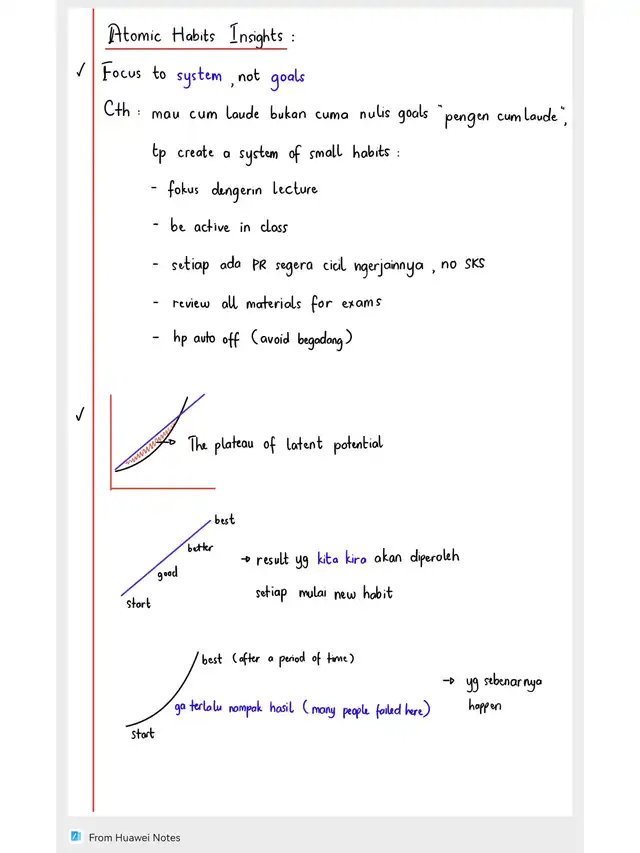 Atomic Habits Insights :
✓ Focus to system, not goals
Cth : mau cum laude bukan cuma nulis goals "pengen cumlaude",
tp create a system of small habits :
- fokus dengerin lecture
- be active in class
- setiap ada PR segera cicil ngerjainnya, no SKS
- review all materials for exams
- hp auto off (avoid begadang)
✓
→ The plateau of latent potential
best
better
good
start
→ result yg kita kira akan diperoleh
setiap mulai new habit
best (after a period of time)
ga terlalu nampak hasil (many people failed here)
start
→ yg sebenarnya
happen
From Huawei Notes